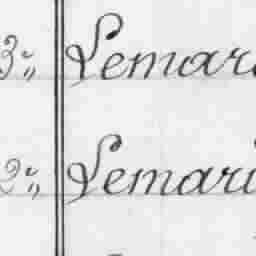 3 „ Lemar
2 „ Lemari